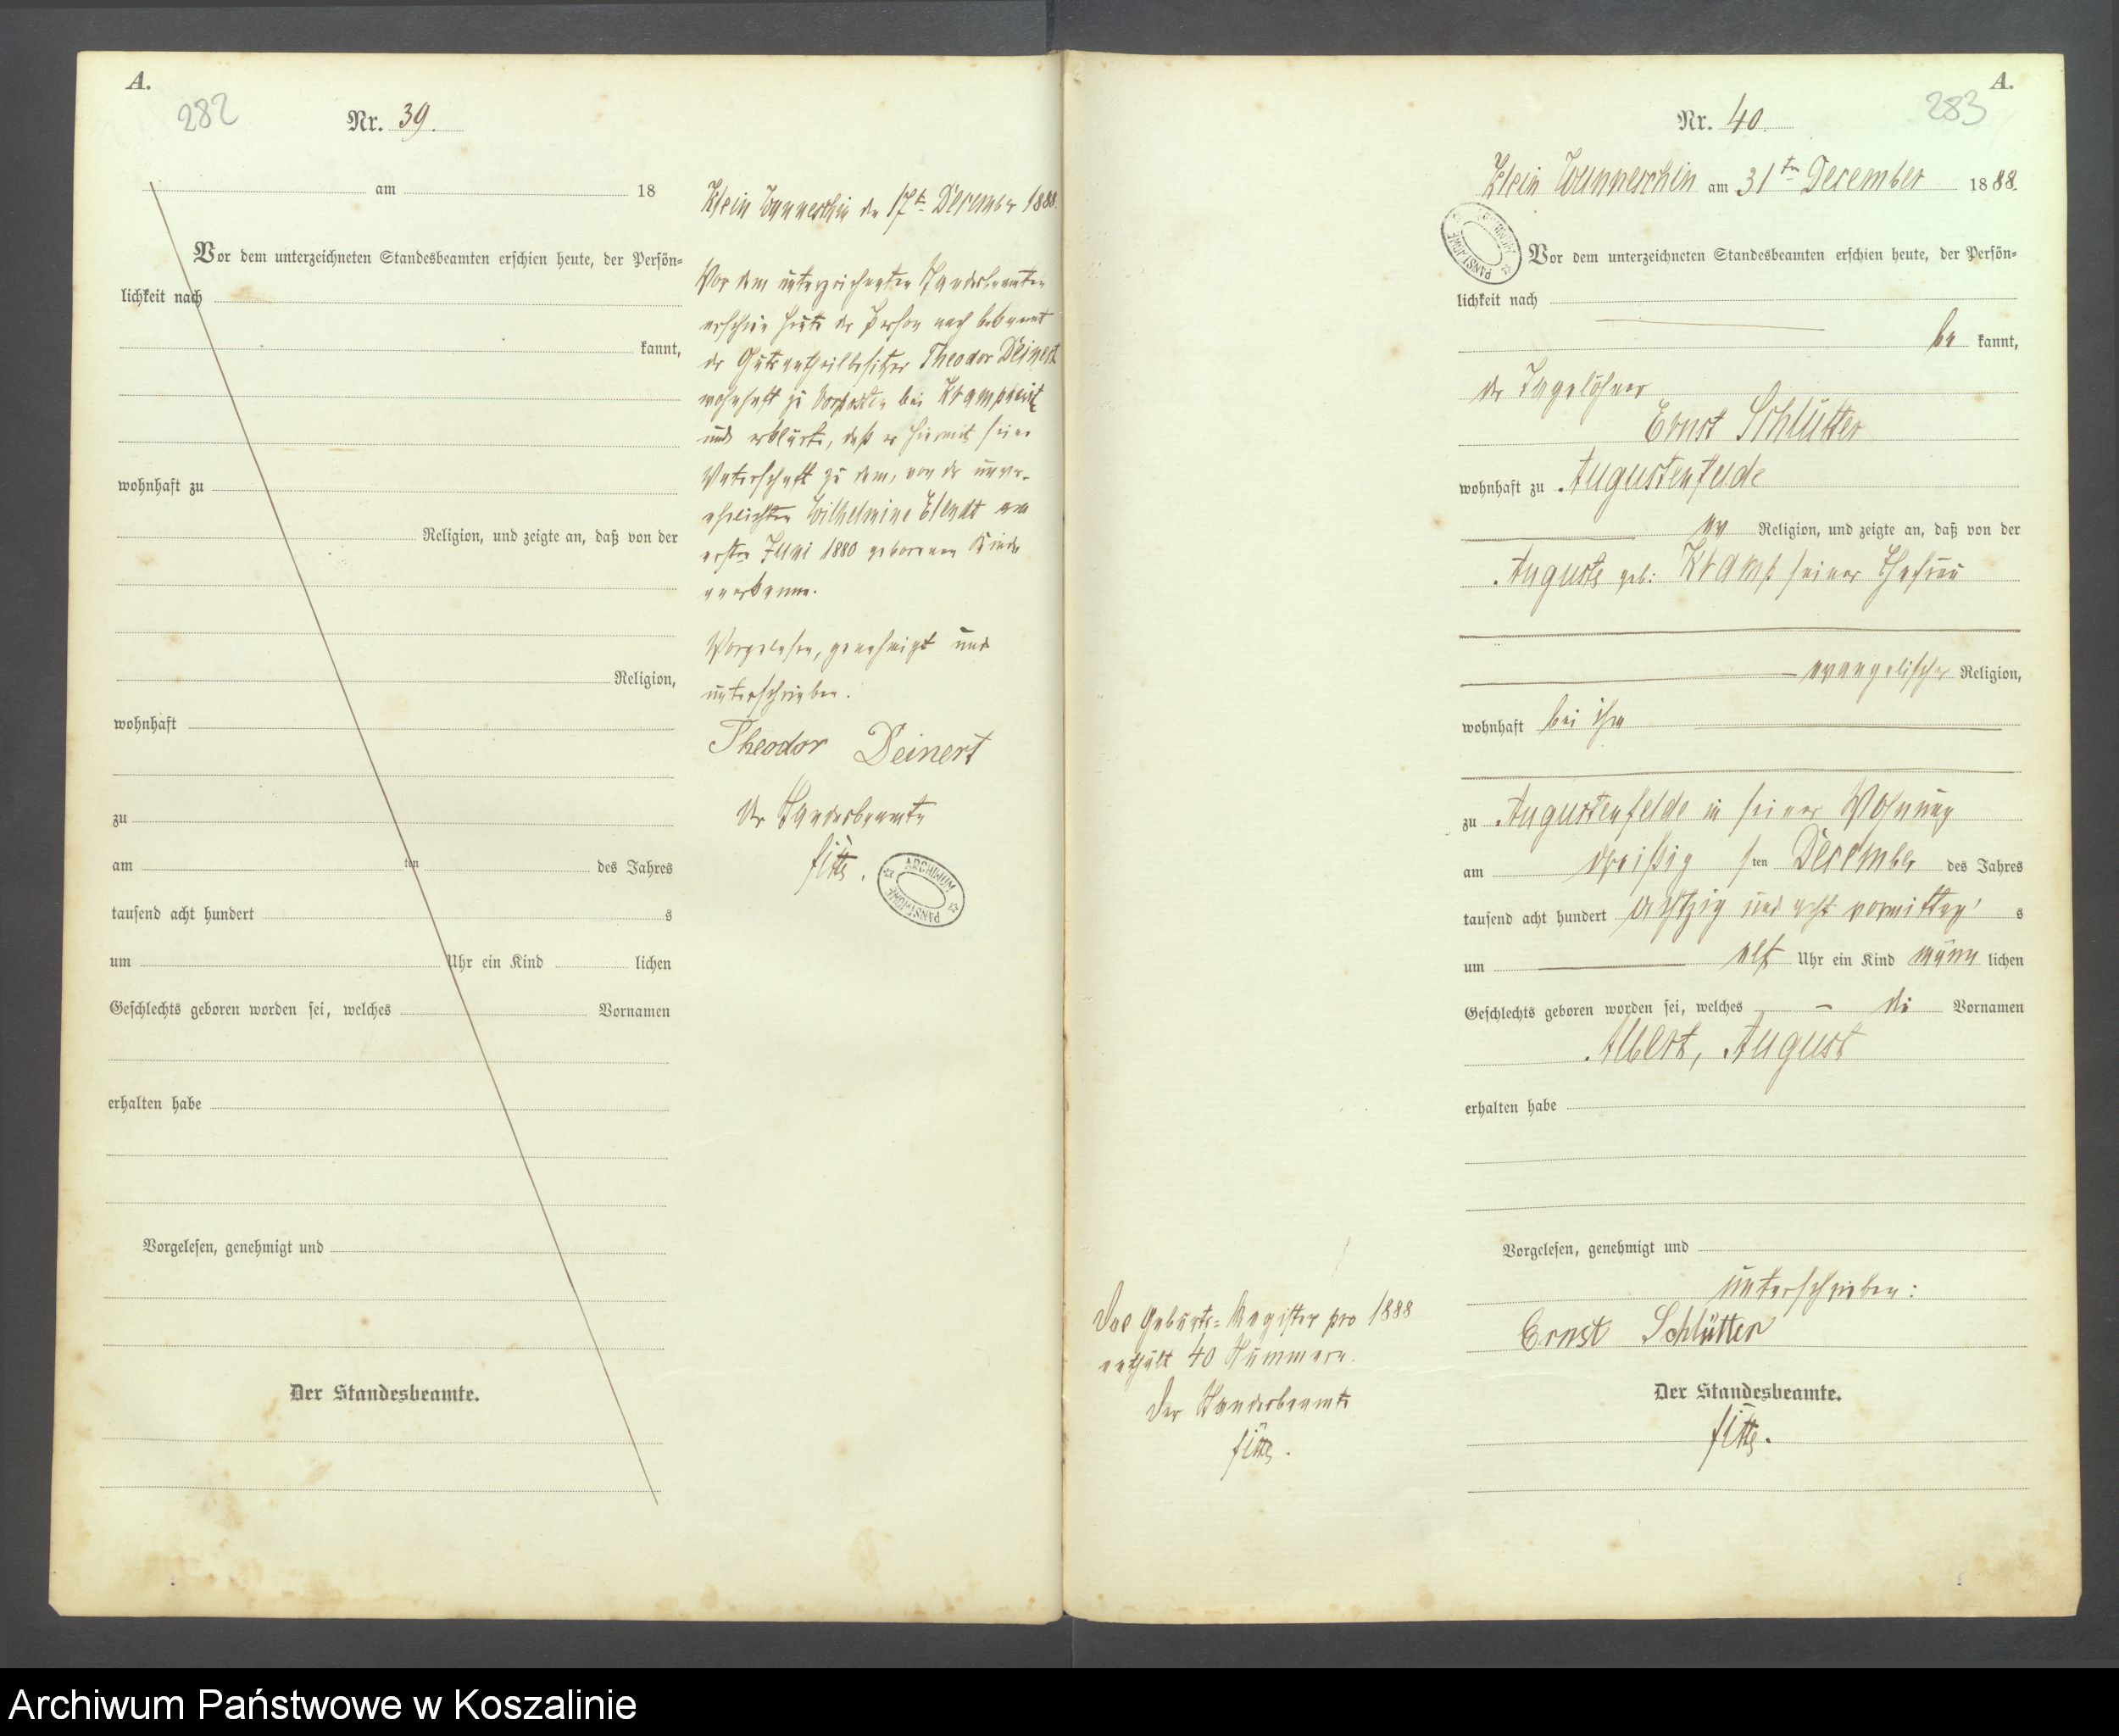 A.
282
Nr. 39.
am 18
Vor dem unterzeichneten Standesbeamten erschien heute, der Persön=
lichkeit nach
kannt,
wohnhaft zu
Religion, und zeigte an, daß von der
Religion,
wohnhaft
zu
am ten des Jahres
tausend acht hundert s
um Uhr ein Kind lichen
Geschlechts geboren worden sei, welches Vornamen
erhalten habe
Vorgelesen, genehmigt und
Der Standesbeamte.
Klein Wunneschin den 17t December 1888.
Vor dem unterzeichneten Standesbeamten
erschien heute der Person nach bekannt
der Gutsantheilbesitzer Theodor Deinert
wohnhaft zu bei Krampkewitz
und erklärte, daß er hiermit seine
Vaterschaft zu dem, von der unver-
ehelichten Wilhelmine Elendt am
ersten Juni 1880 geborenen Kinde
anerkenne.
Vorgelesen, genehmigt und
unterschrieben.
Theodor Deinert
Der Standesbeamte
ARCHIWUM PAŃSTWOWE
A.
283
Nr. 40.
Klein Wunneschin am 31ten December 1888.
ARCHIWUM PAŃSTWOWE
Vor dem unterzeichneten Standesbeamten erschien heute, der Persön=
lichkeit nach
be kannt,
der Tagelöhner
Ernst Schlütter
wohnhaft zu Augustenfelde
ev Religion, und zeigte an, daß von der
Auguste geb: Kramp seiner Ehefrau
evangelischer Religion,
wohnhaft bei ihm
zu Augustenfelde in seiner Wohnung
am dreißig sten December des Jahres
tausend acht hundert achtzig und acht vormittag s
um elf Uhr ein Kind männ lichen
Geschlechts geboren worden sei, welches die Vornamen
Albert, August
erhalten habe
Vorgelesen, genehmigt und
unterschrieben:
Ernst Schlütter
Der Standesbeamte.
Das Geburts=Register pro 1888
enthält 40 Nummern.
Der Standesbeamte
Archiwum Państwowe w Koszalinie